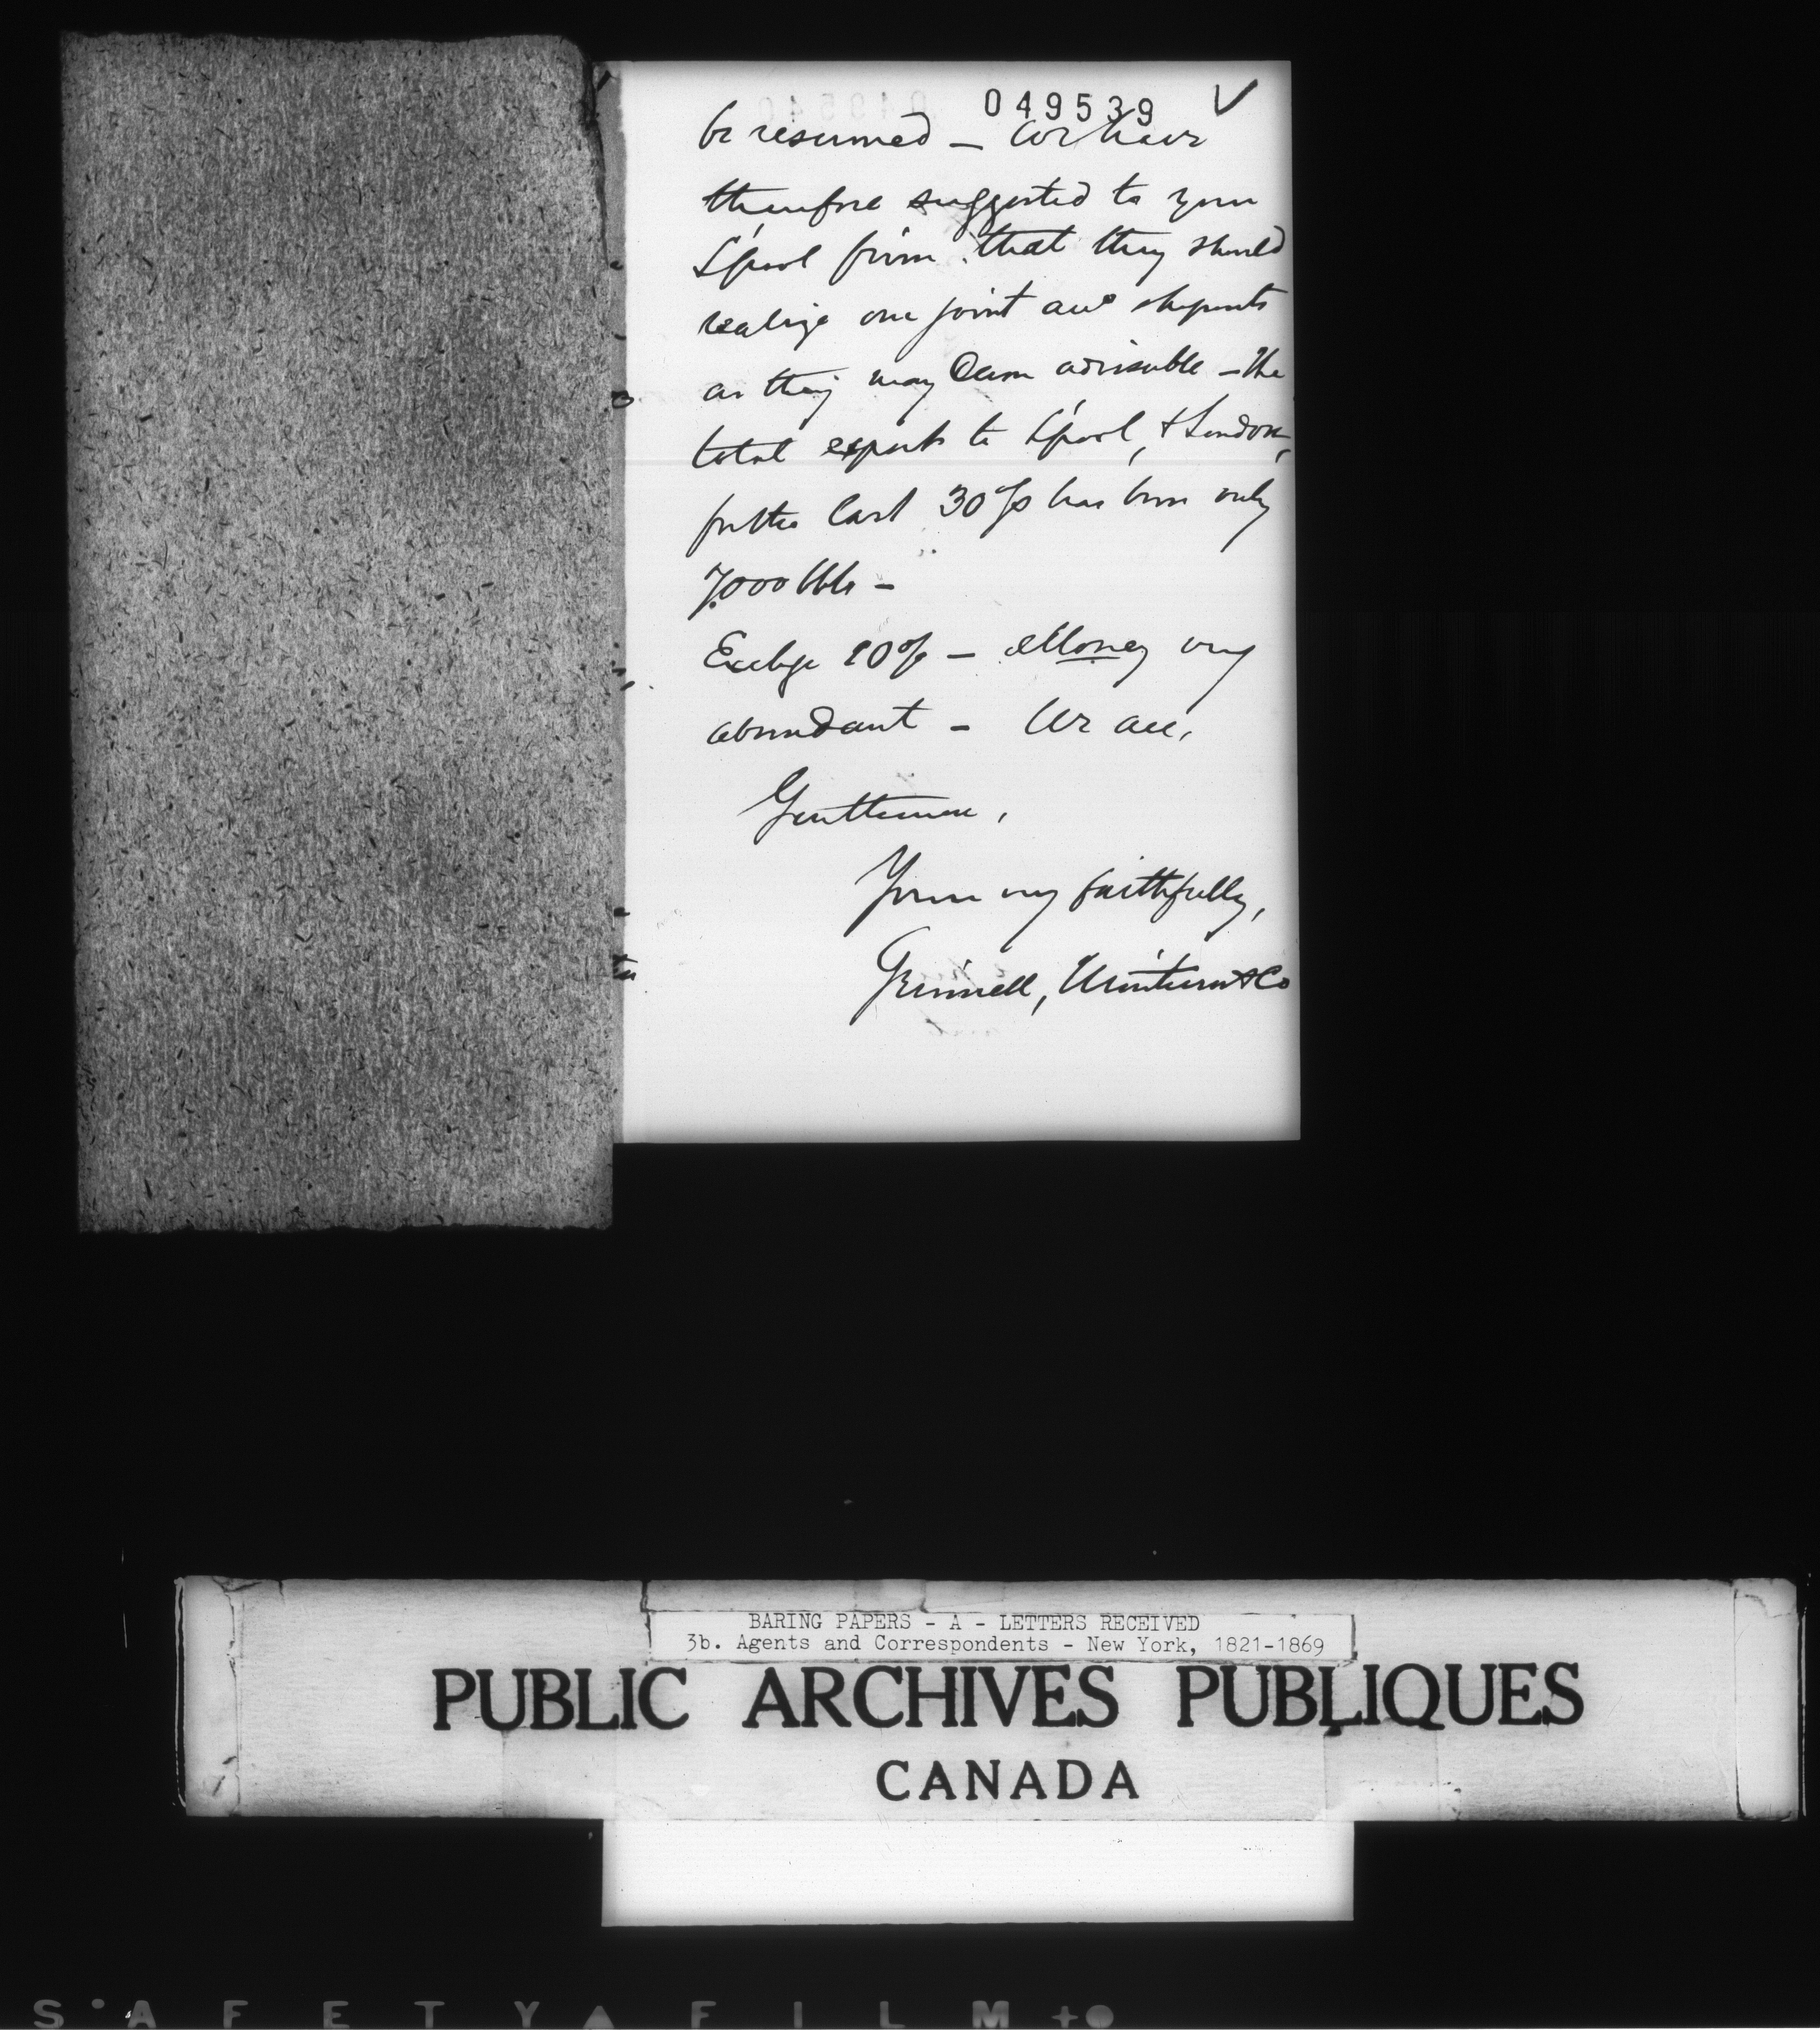 049539 ✓
be resumed — We have
therefore suggested to your
L'pool firm that they should
realize our joint acco shipments
as they may deem advisable — The
total export to L'pool, & London,
for the last 30 d/s has been only
7.000 bbls —
Exchge 10% — Money very
abundant — We are,
Gentlemen,
Yours very faithfully,
Grinnell, Minturn & Co
BARING PAPERS - A - LETTERS RECEIVED
3b. Agents and Correspondents - New York, 1821-1869
PUBLIC ARCHIVES PUBLIQUES
CANADA
SAFETY FILM